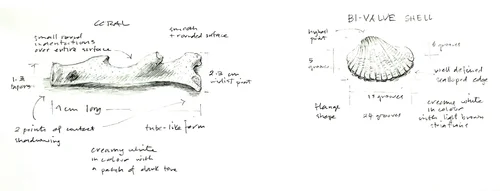 CORAL
small round
indentations
over entire surface
smooth
+ rounded surface
1.2
tapers
2.2 cm
widest point
9 cm long
2 points of contact
shadowing
tube-like form
creamy white
in colour with
a patch of dark tone
BI-VALVE SHELL
highest
point
5
grooves
6 grooves
well defined
scalloped edge
flange
shape
24 grooves
creamy white
in colour
with light brown
striations